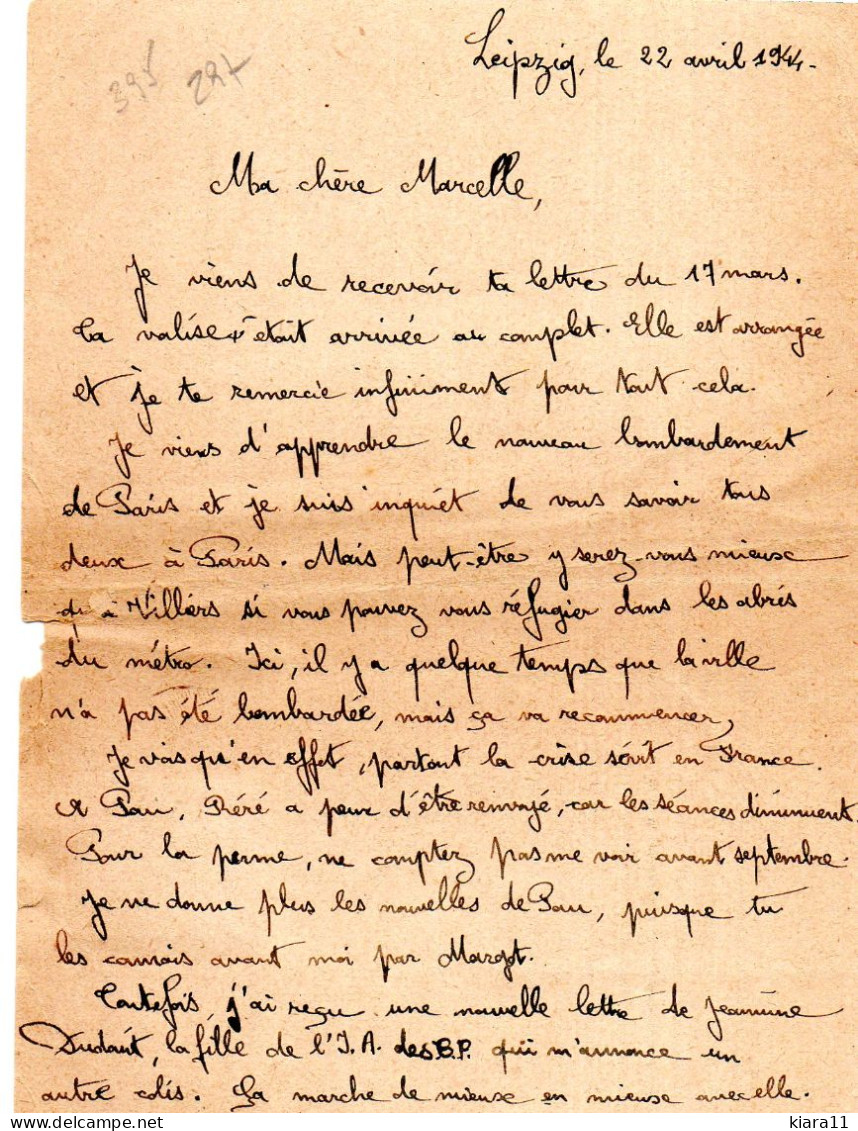 395 227
Leipzig, le 22 avril 1944.
Ma chère Marcelle,
Je viens de recevoir ta lettre du 17 mars.
La valise était arrivée au complet. Elle est arrangée
et je te remercie infiniment pour tout cela.
Je viens d'apprendre le nouveau bombardement
de Paris et je suis inquiet de vous savoir tous
deux à Paris. Mais peut-être y serez-vous mieux
qu'à Villiers si vous pouvez vous réfugier dans les abris
du métro. Ici, il y a quelque temps que la ville
n'a pas été bombardée, mais ça va recommencer,
Je vois qu'en effet, partout la crise sévit en France.
A Pau, Péré a peur d'être renvoyé, car les séances diminuent.
Pour la perme, ne comptez pas me voir avant septembre.
Je ne donne plus les nouvelles de Pau, puisque tu
les connais avant moi par Margot.
Toutefois, j'ai reçu une nouvelle lettre de Jeannine
Dudaut, la fille de l'I.A. des B.P. qui m'annonce un
autre colis. Ça marche de mieux en mieux avec elle.
www.delcampe.net
kiara11